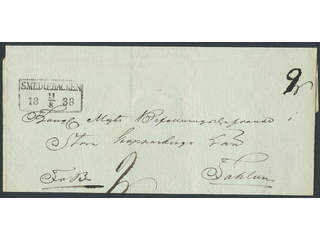 SMEDJEBACKEN
18 11/8 38
Kongl Majts Befallningshafvande i
Stora Kopparbergs Län
Fahlun